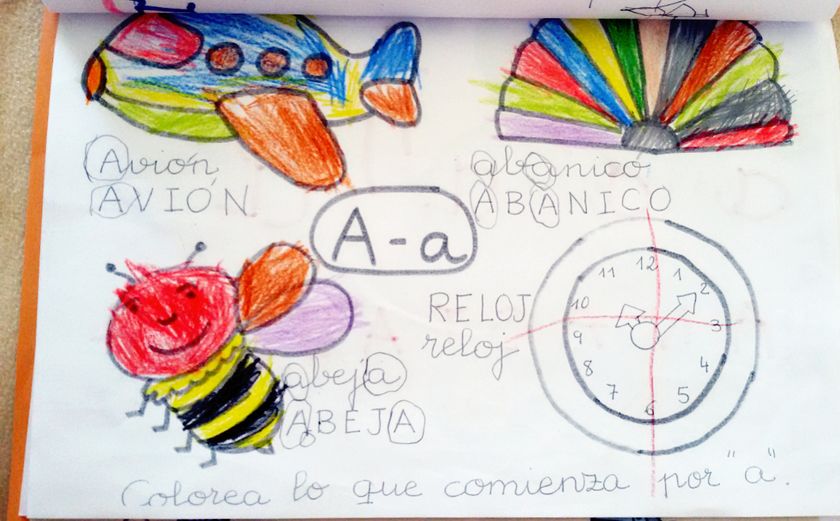 Avión
AVIÓN
abanicó
ABANICO
A-a
RELOJ
reloj
12
1
2
3
4
5
6
7
8
9
10
11
abeja
ABEJA
Colorea lo que comienza por "a".